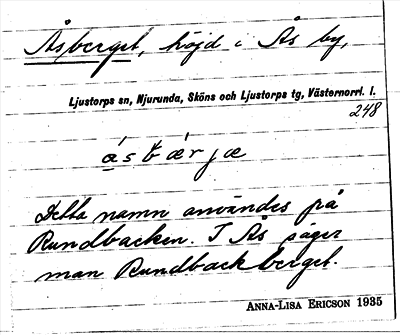 Åsberget, höjd i Ås by,
Ljustorps sn, Njurunda, Sköns och Ljustorps tg, Västernorrl. l.
248
ǻsbǽrjæ
Detta namn användes på
Rundbacken. I Ås säger
man Rundbackberget.
ANNA-LISA ERICSON 1935